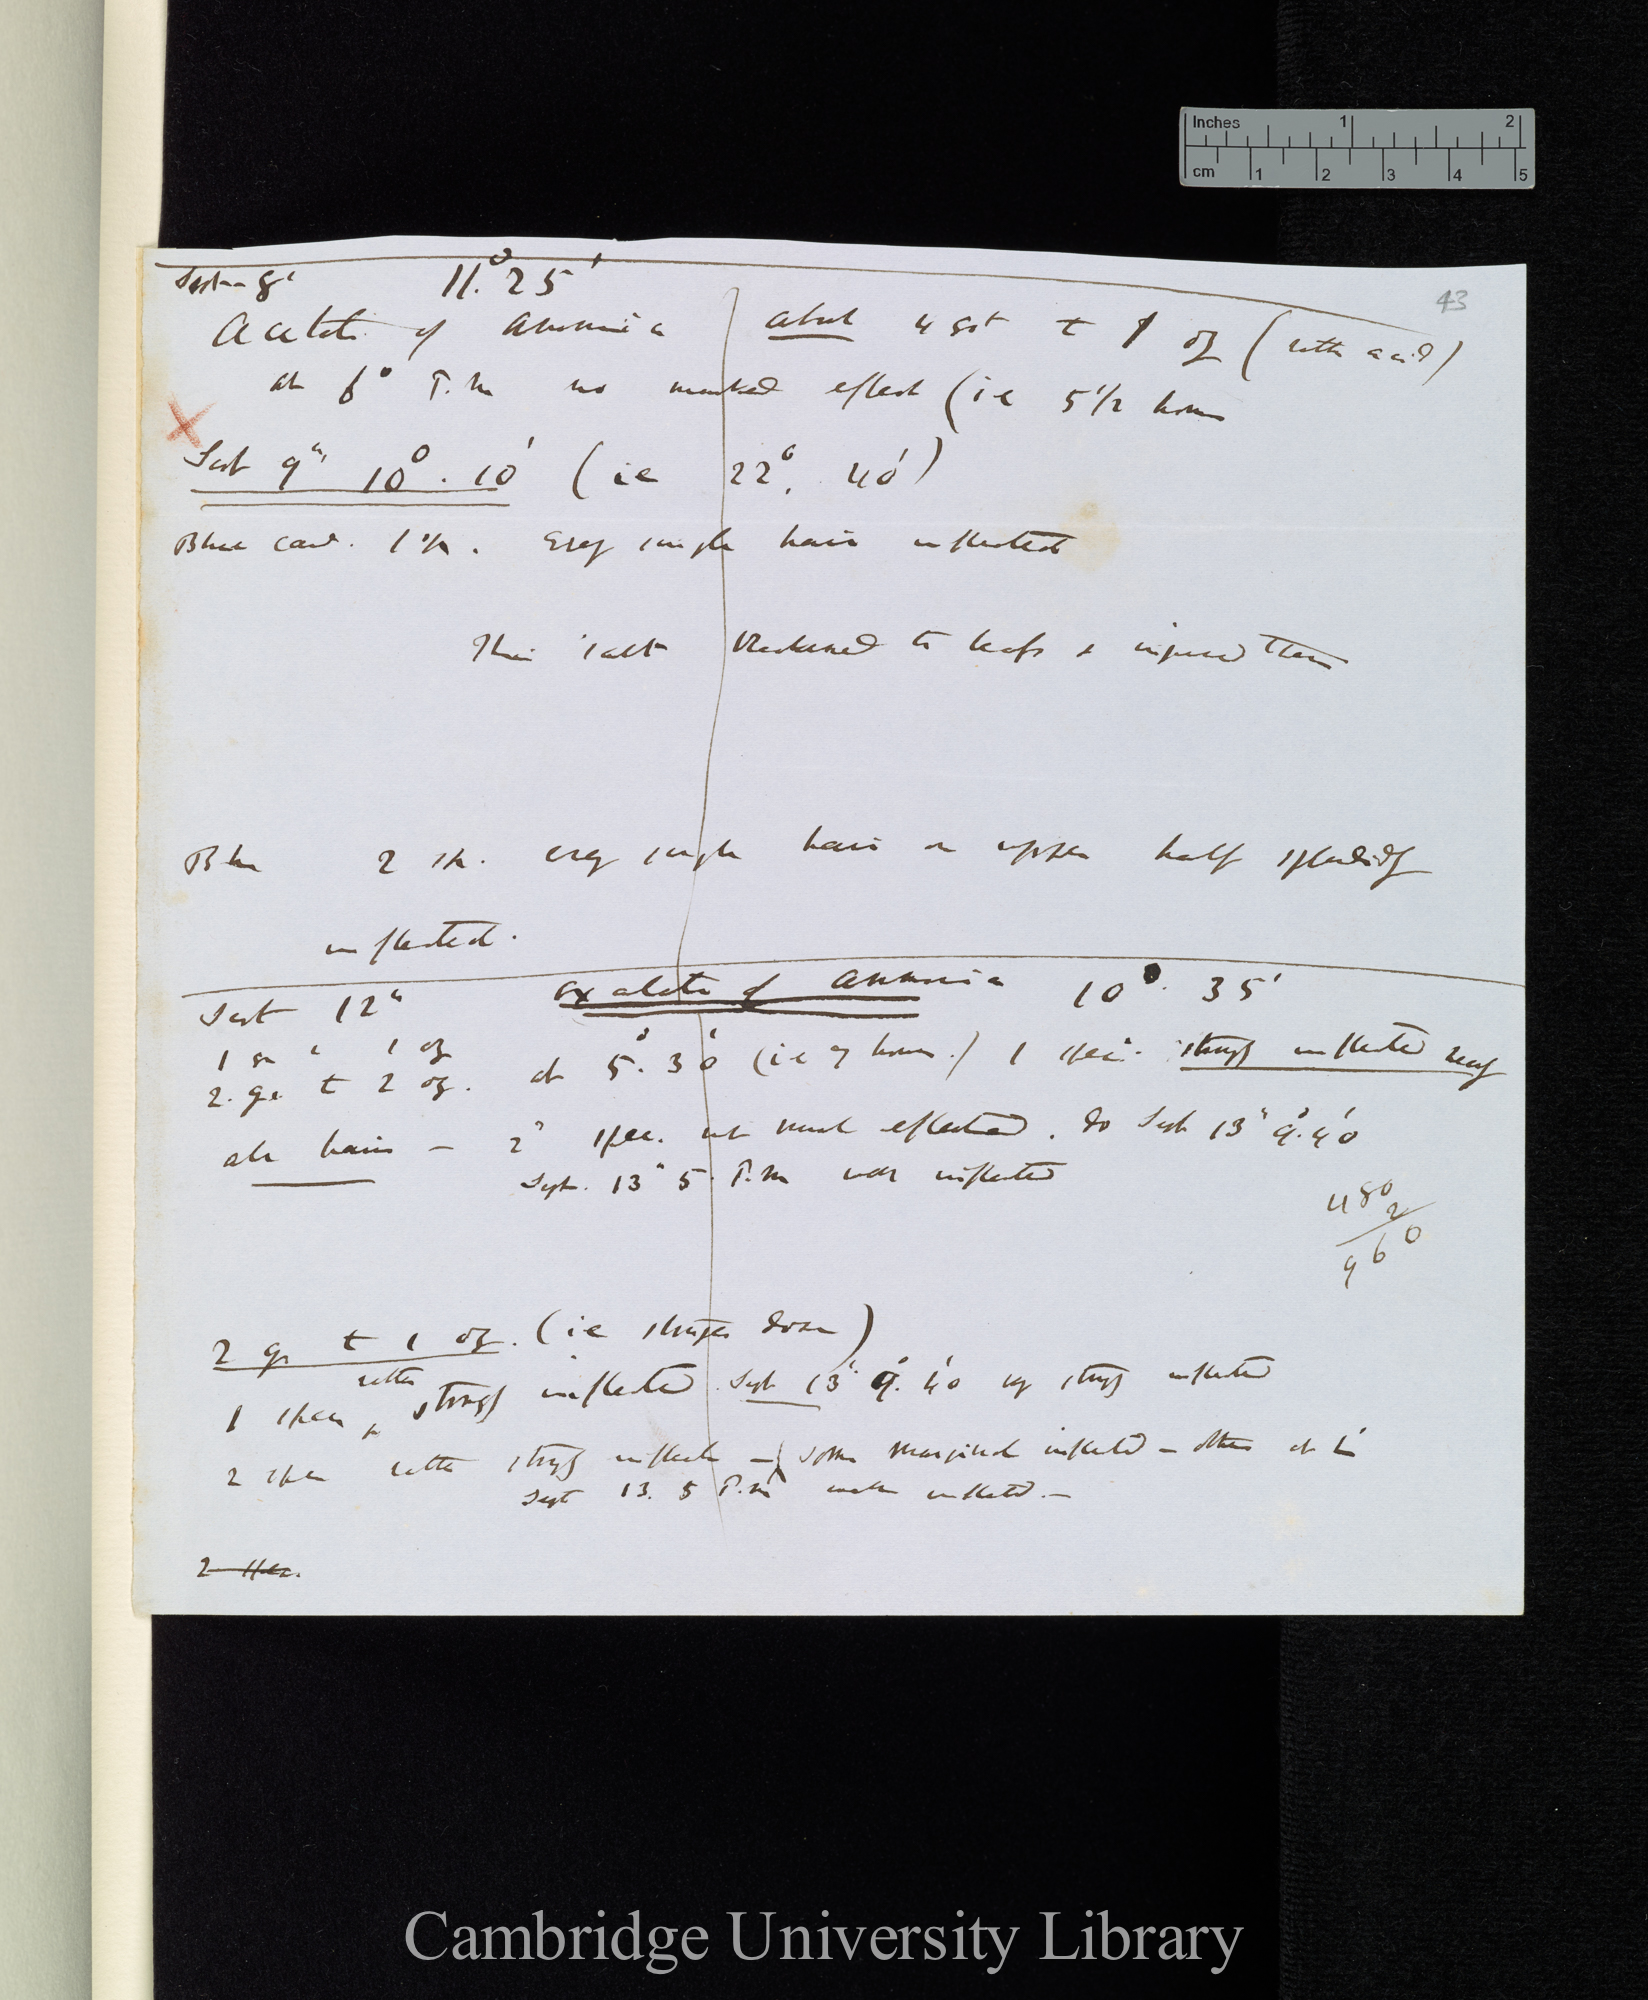 Inches 1 2
cm 1 2 3 4 5
43
Sept 8th 11°. 25'
Acetate of Ammonia about 4 grt to 1 oz (rather acid)
at 6° P.M no marked effect (ie 5 1/2 hours
X
Sept 9th 10°. 10' (ie 22°. 40')
Blue card. 1 sp. Every single hair inflected
This salt blackened the leafs & injured them
Blue 2 sp. every single hair on upper half splendidly
inflected.
Sept 12th Oxalate of Ammonia 10°. 35'
1 gr 1 oz
2. gr. to 2 oz. at 5°. 30' (ie 7 hours.) 1 spec. strongly inflected nearly
all hairs — 2d spec. not much effected. do Sept 13th 9°. 40'
Sept. 13th 5. P.M well inflected
480
2
960
2 gr to 1 oz. (ie stronger dose)
rather
1 spec strongly inflected. Sept 13th 9°. 40' very strongly inflected
2 spec rather strongly inflected — some marginal inflected — others not
Sept 13. 5 P.M inflected. —
2 spec.
Cambridge University Library